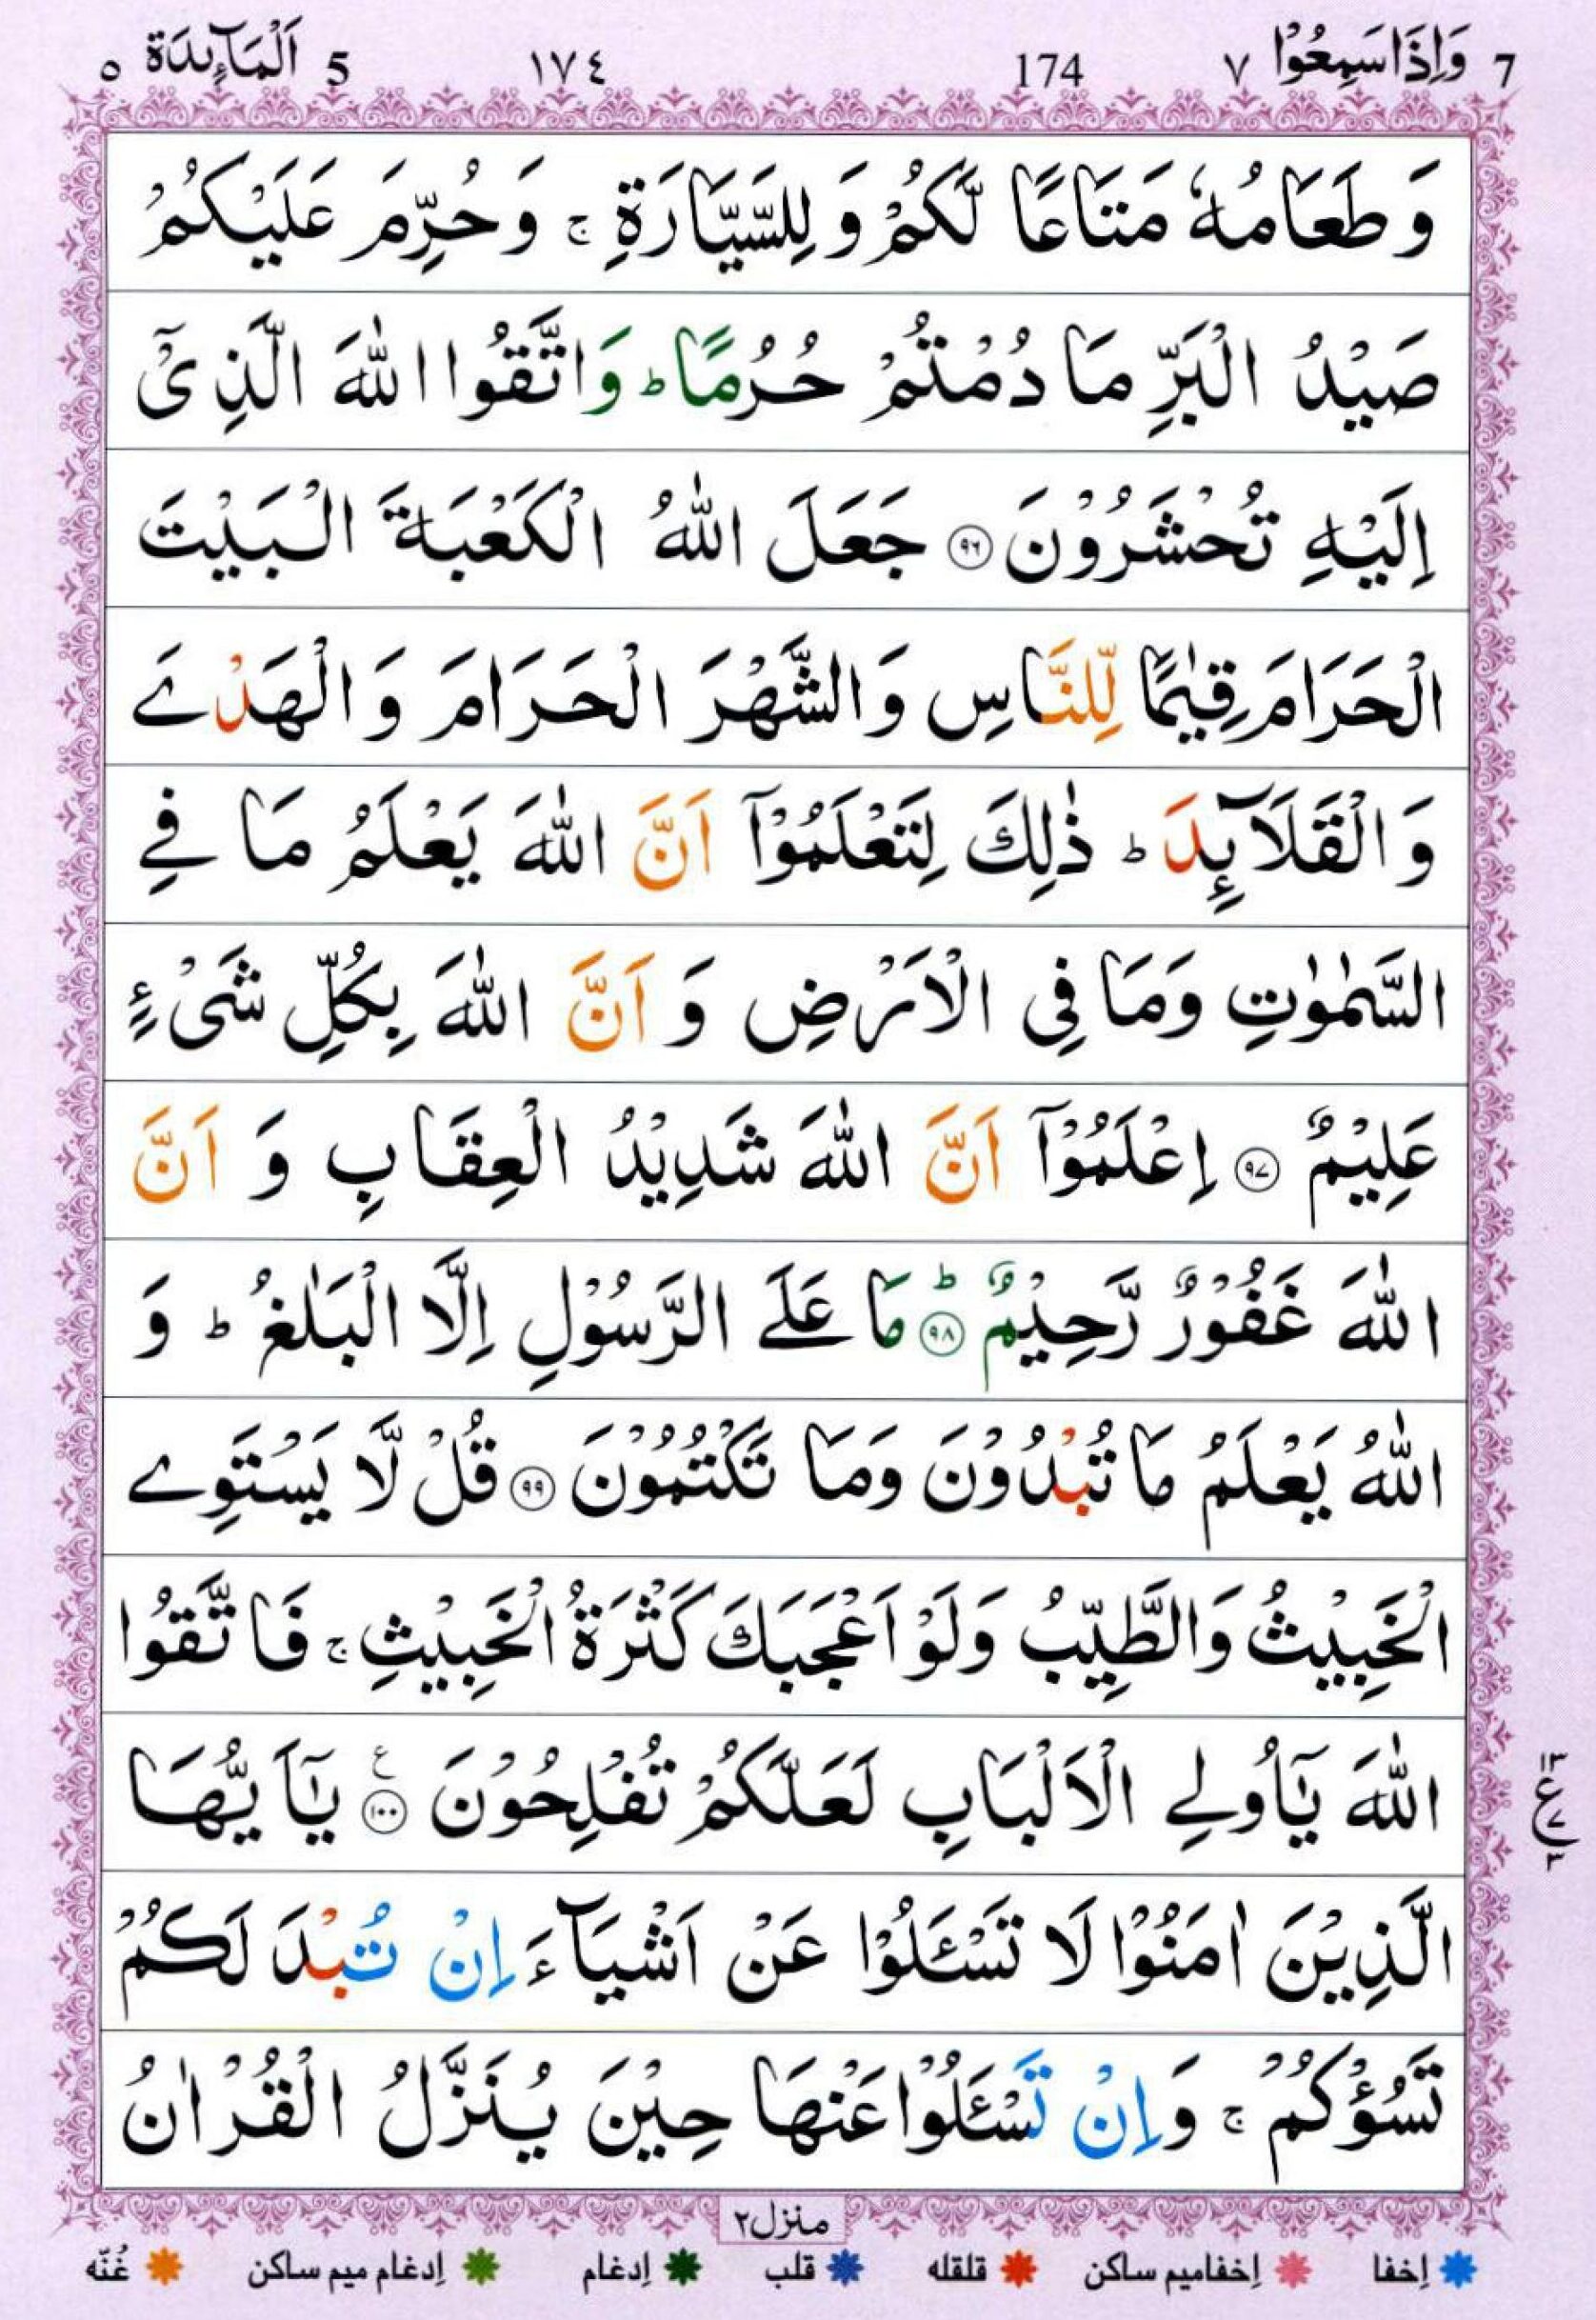 7 وَاِذَا سَمِعُوۡا ٧ 174 ١٧٤ 5 اَلۡمَآئِدَة ٥
وَطَعَامُهٗ مَتَاعًا لَّكُمۡ وَلِلسَّيَّارَةِ ۚ وَحُرِّمَ عَلَيۡكُمۡ
صَيۡدُ الۡبَرِّ مَا دُمۡتُمۡ حُرُمًا ؕ وَاتَّقُوا اللّٰهَ الَّذِىۡۤ
اِلَيۡهِ تُحۡشَرُوۡنَ ﴿٩٦﴾ جَعَلَ اللّٰهُ الۡكَعۡبَةَ الۡبَيۡتَ
الۡحَرَامَ قِيٰمًا لِّلنَّاسِ وَالشَّهۡرَ الۡحَرَامَ وَالۡهَدۡىَ
وَالۡقَلَاۤئِدَ ؕ ذٰ لِكَ لِتَعۡلَمُوۡۤا اَنَّ اللّٰهَ يَعۡلَمُ مَا فِى
السَّمٰوٰتِ وَمَا فِى الۡاَرۡضِ وَاَنَّ اللّٰهَ بِكُلِّ شَىۡءٍ
عَلِيۡمٌ ﴿٩٧﴾ اِعۡلَمُوۡۤا اَنَّ اللّٰهَ شَدِيۡدُ الۡعِقَابِ وَاَنَّ
اللّٰهَ غَفُوۡرٌ رَّحِيۡمٌ ؕ ﴿٩٨﴾ مَا عَلَى الرَّسُوۡلِ اِلَّا الۡبَلٰغُ ؕ وَ
اللّٰهُ يَعۡلَمُ مَا تُبۡدُوۡنَ وَمَا تَكۡتُمُوۡنَ ﴿٩٩﴾ قُلْ لَّا يَسۡتَوِى
الۡخَبِيۡثُ وَالطَّيِّبُ وَلَوۡ اَعۡجَبَكَ كَثۡرَةُ الۡخَبِيۡثِ ۚ فَاتَّقُوا
اللّٰهَ يٰۤاُولِى الۡاَلۡبَابِ لَعَلَّكُمۡ تُفۡلِحُوۡنَ ﴿١٠٠﴾ ع يٰۤاَيُّهَا
١٣ ع ٧ ٣
الَّذِيۡنَ اٰمَنُوۡا لَا تَسۡئَلُوۡا عَنۡ اَشۡيَآءَ اِنۡ تُبۡدَ لَـكُمۡ
تَسُؤۡكُمۡ ۚ وَاِنۡ تَسۡئَلُوۡا عَنۡهَا حِيۡنَ يُنَزَّلُ الۡقُرۡاٰنُ
منزل٢
اِخفا اِخفامیم ساکن قلقله قلب اِدغام اِدغام میم ساکن غُنّه